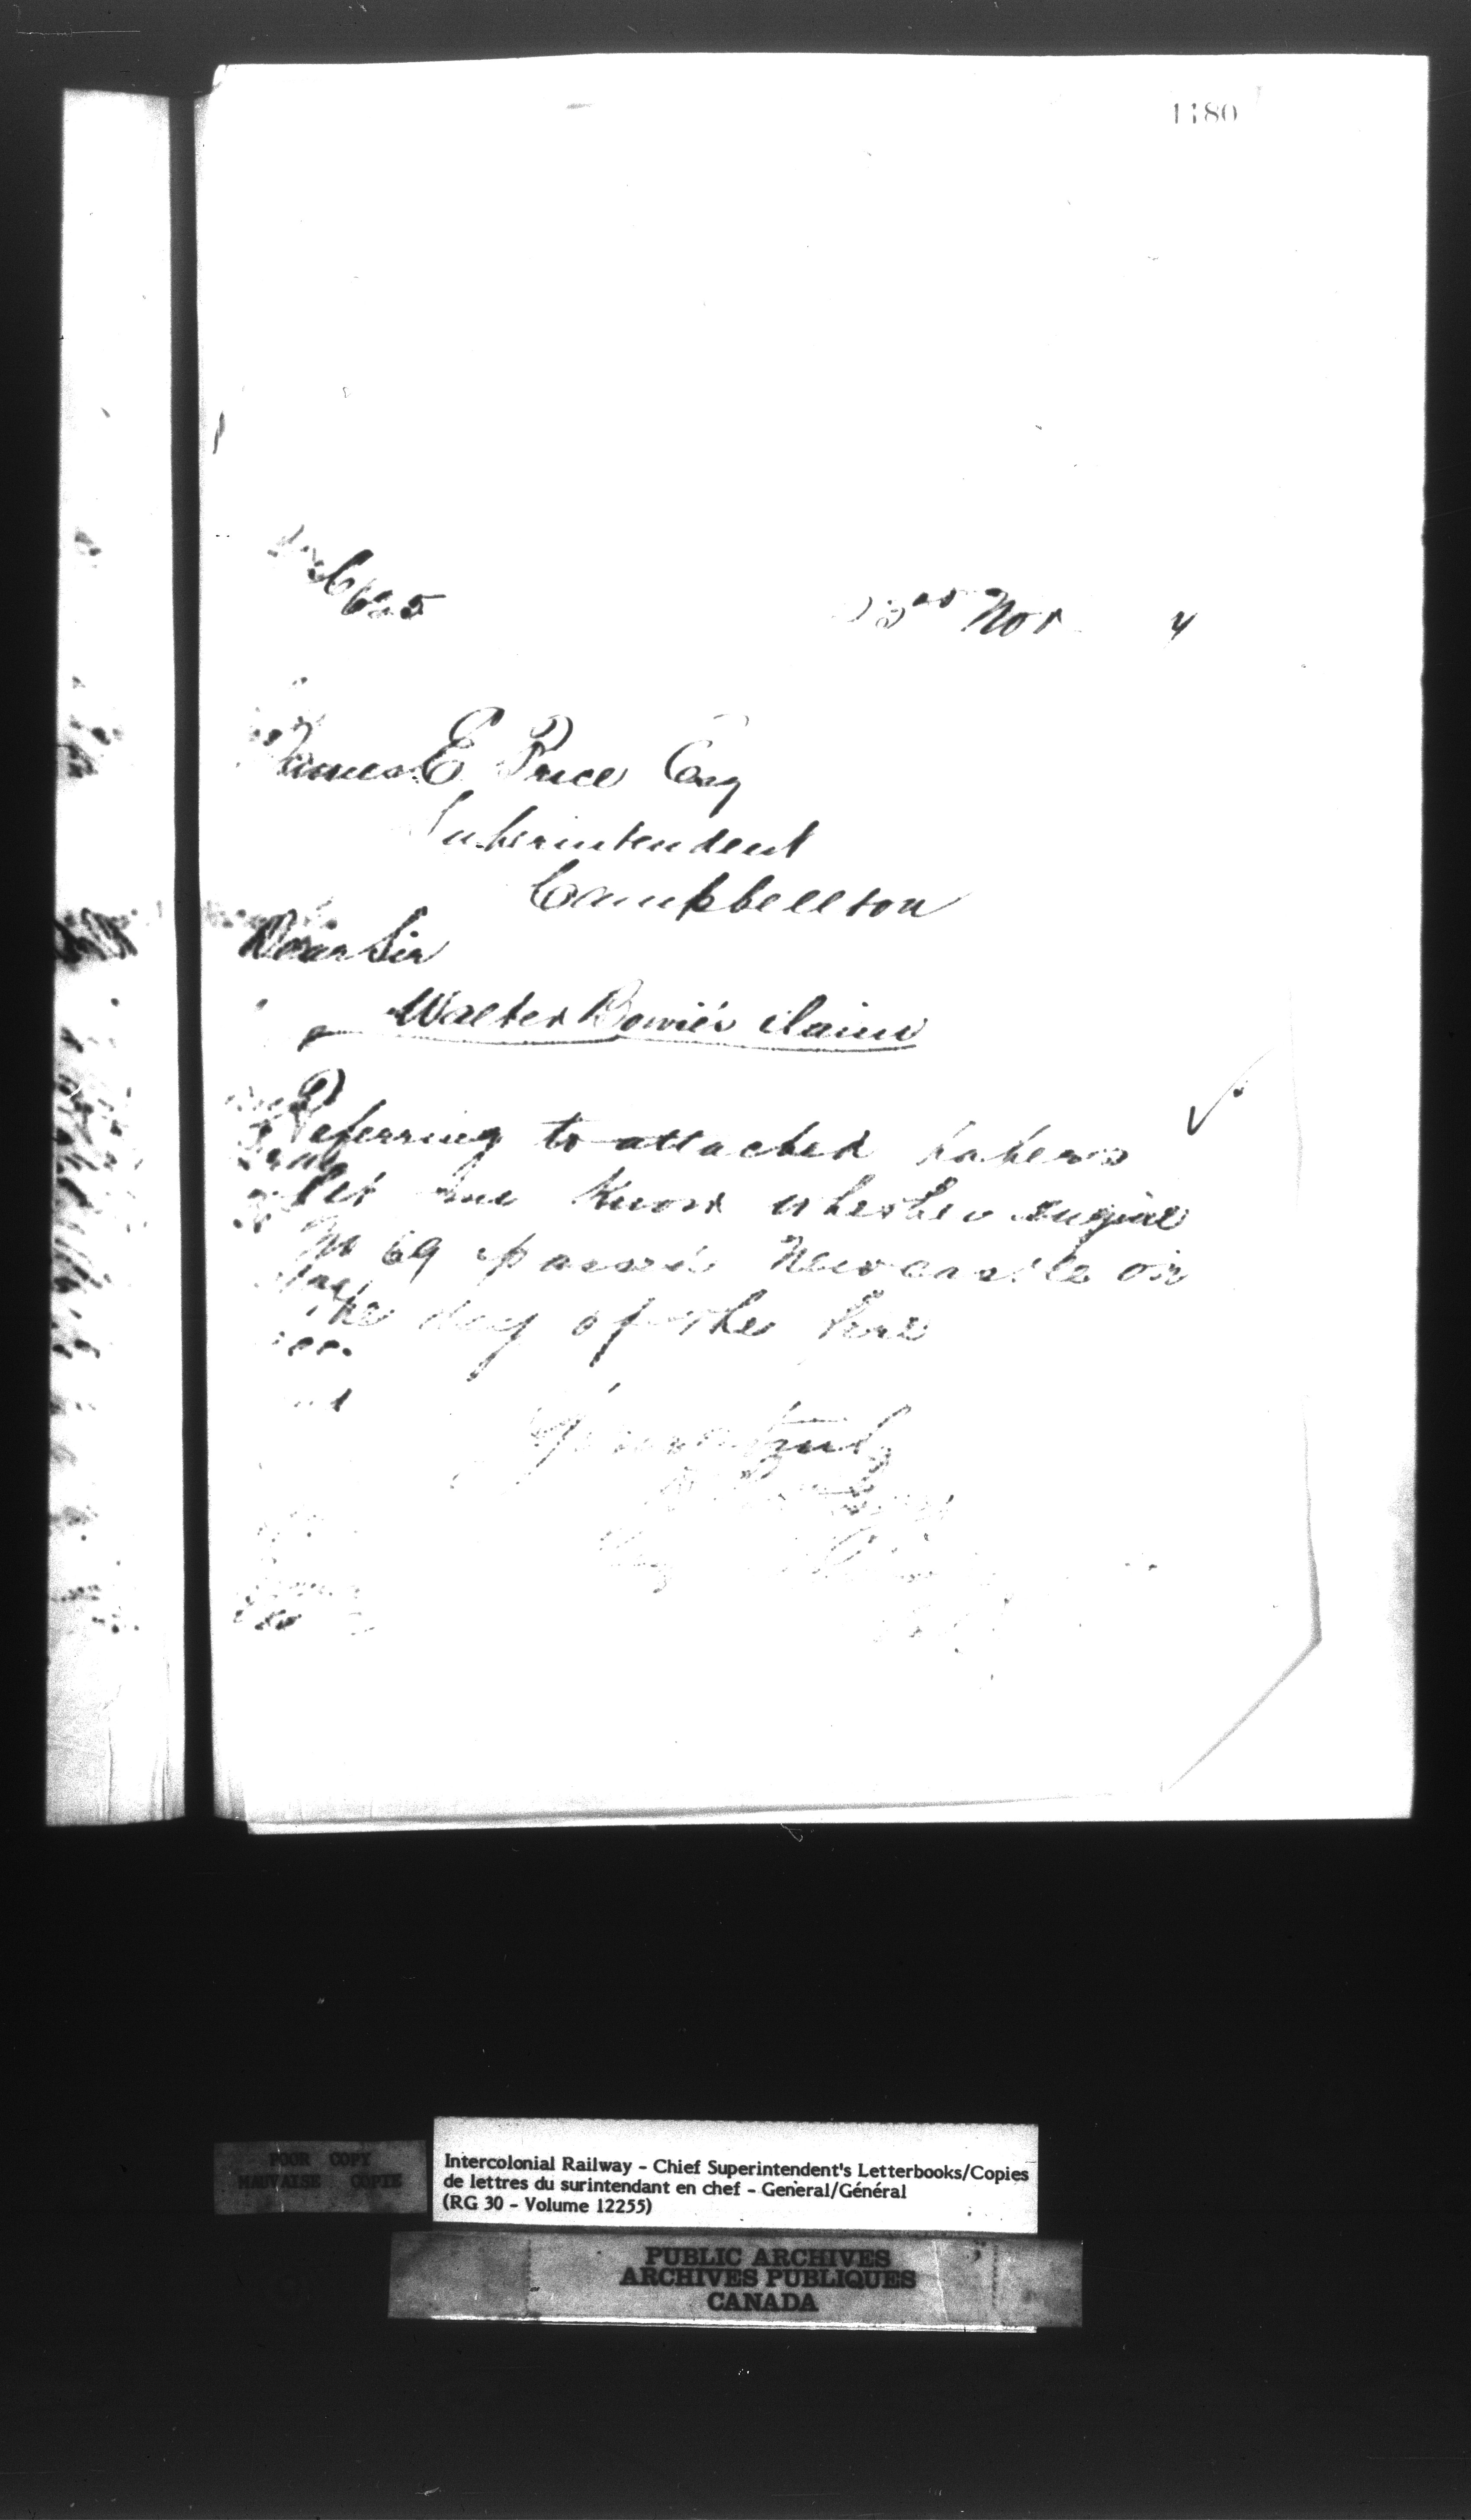 1180
6625
23rd Nov 4
James E Price Esq
Superintendent
Campbellton
Dear Sir
Walter Bowie's claim
Referring to attached papers
let me know whether engine
No 69 passed Newcastle on
the day of the fire
Yours truly
POOR COPY
MAUVAISE COPIE
Intercolonial Railway - Chief Superintendent's Letterbooks/Copies
de lettres du surintendant en chef - General/Général
(RG 30 - Volume 12255)
PUBLIC ARCHIVES
ARCHIVES PUBLIQUES
CANADA